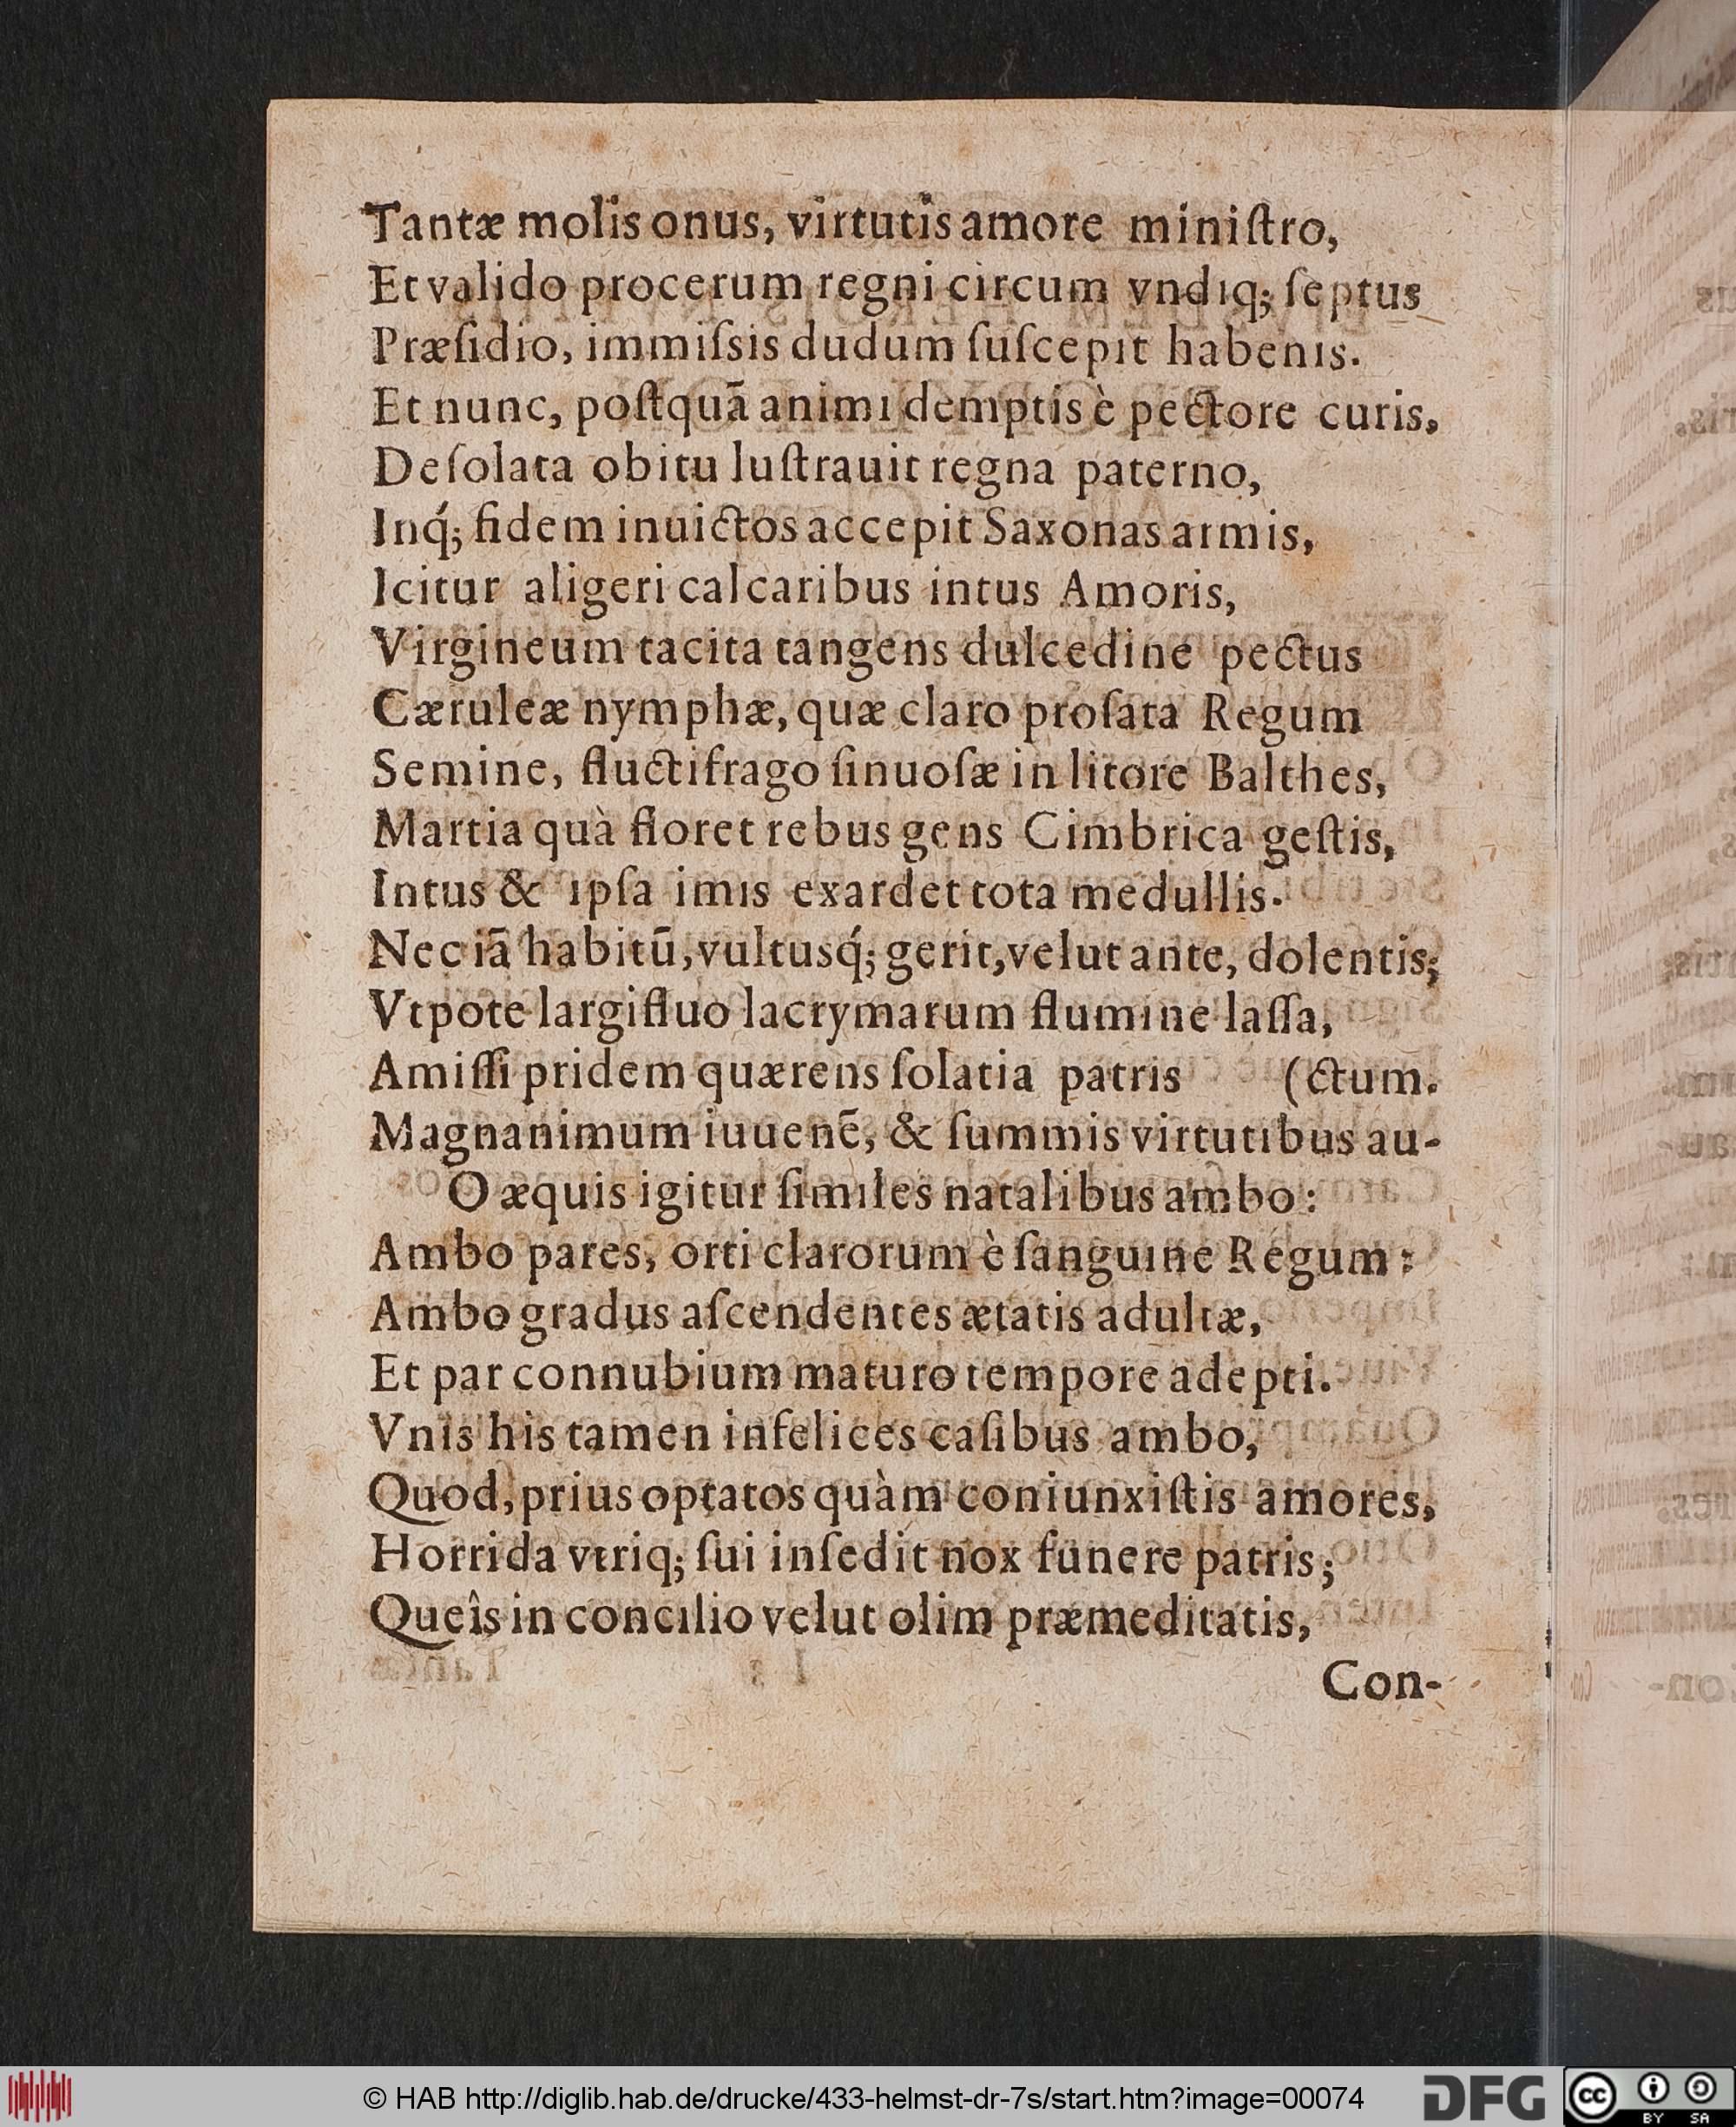 Tantæ molis onus, virtutis amore miniſtro,
Et valido procerum regni circum vndiq; ſeptus
Præſidio, immiſsis dudum ſuſcepit habenis.
Et nunc, poſtquã animi demptis è pectore curis,
Deſolata obitu luſtrauit regna paterno,
Inq́; fidem inuictos accepit Saxonas armis,
Icitur aligeri calcaribus intus Amoris,
Virgineum tacita tangens dulcedine pectus
Cæruleæ nymphæ, quæ claro proſata Regum
Semine, fluctifrago ſinuoſæ in litore Balthes,
Martia quà floret rebus gens Cimbrica geſtis,
Intus & ipſa imis exardet tota medullis.
Nec iã habitũ, vultusq́; gerit, velut ante, dolentis;
Vtpote largifluo lacrymarum flumine laſſa,
Amiſſi pridem quærens ſolatia patris (ctum.
Magnanimum iuuenẽ, & ſummis virtutibus au-
O æquis igitur ſimiles natalibus ambo:
Ambo pares, orti clarorum è ſanguine Regum:
Ambo gradus aſcendentes ætatis adultæ,
Et par connubium maturo tempore adepti.
Vnis his tamen infelices caſibus ambo,
Quod, prius optatos quàm coniunxiſtis amores,
Horrida vtriq; ſui inſedit nox funere patris;
Queîs in concilio velut olim præmeditatis,
Con-
© HAB http://diglib.hab.de/drucke/433-helmst-dr-7s/start.htm?image=00074
DFG
cc BY SA